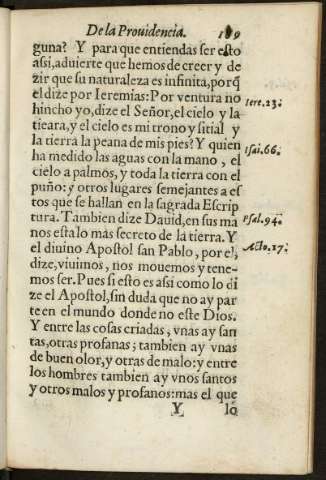 De la Prouidencia. 189
guna? Y para que entiendas ser esto
assi, aduierte que hemos de creer y de
zir que su naturaleza es infinita, porq̃
el dize por Ieremias: Por ventura no
hincho yo, dize el Señor, el cielo y la
Iere. 23.
tieara, y el cielo es mi trono y sitial y
la tierra la peana de mis pies? Y quien
Isai. 66.
ha medido las aguas con la mano, el
cielo a palmos, y toda la tierra con el
puño: y otros lugares semejantes a es
tos que se hallan en la sagrada Escrip
tura. Tambien dize Dauid, en sus ma
Psal. 94.
nos esta lo mas secreto de la tierra. Y
el diuino Apostol san Pablo, por el,
Acto. 17.
dize, viuimos, nos mouemos y tene-
mos ser. Pues si esto es assi como lo di
ze el Apostol, sin duda que no ay par
te en el mundo donde no este Dios.
Y entre las cosas criadas, vnas ay san
tas, otras profanas; tambien ay vnas
de buen olor, y otras de malo: y entre
los hombres tambien ay vnos santos
y otros malos y profanos: mas el que
Y lo